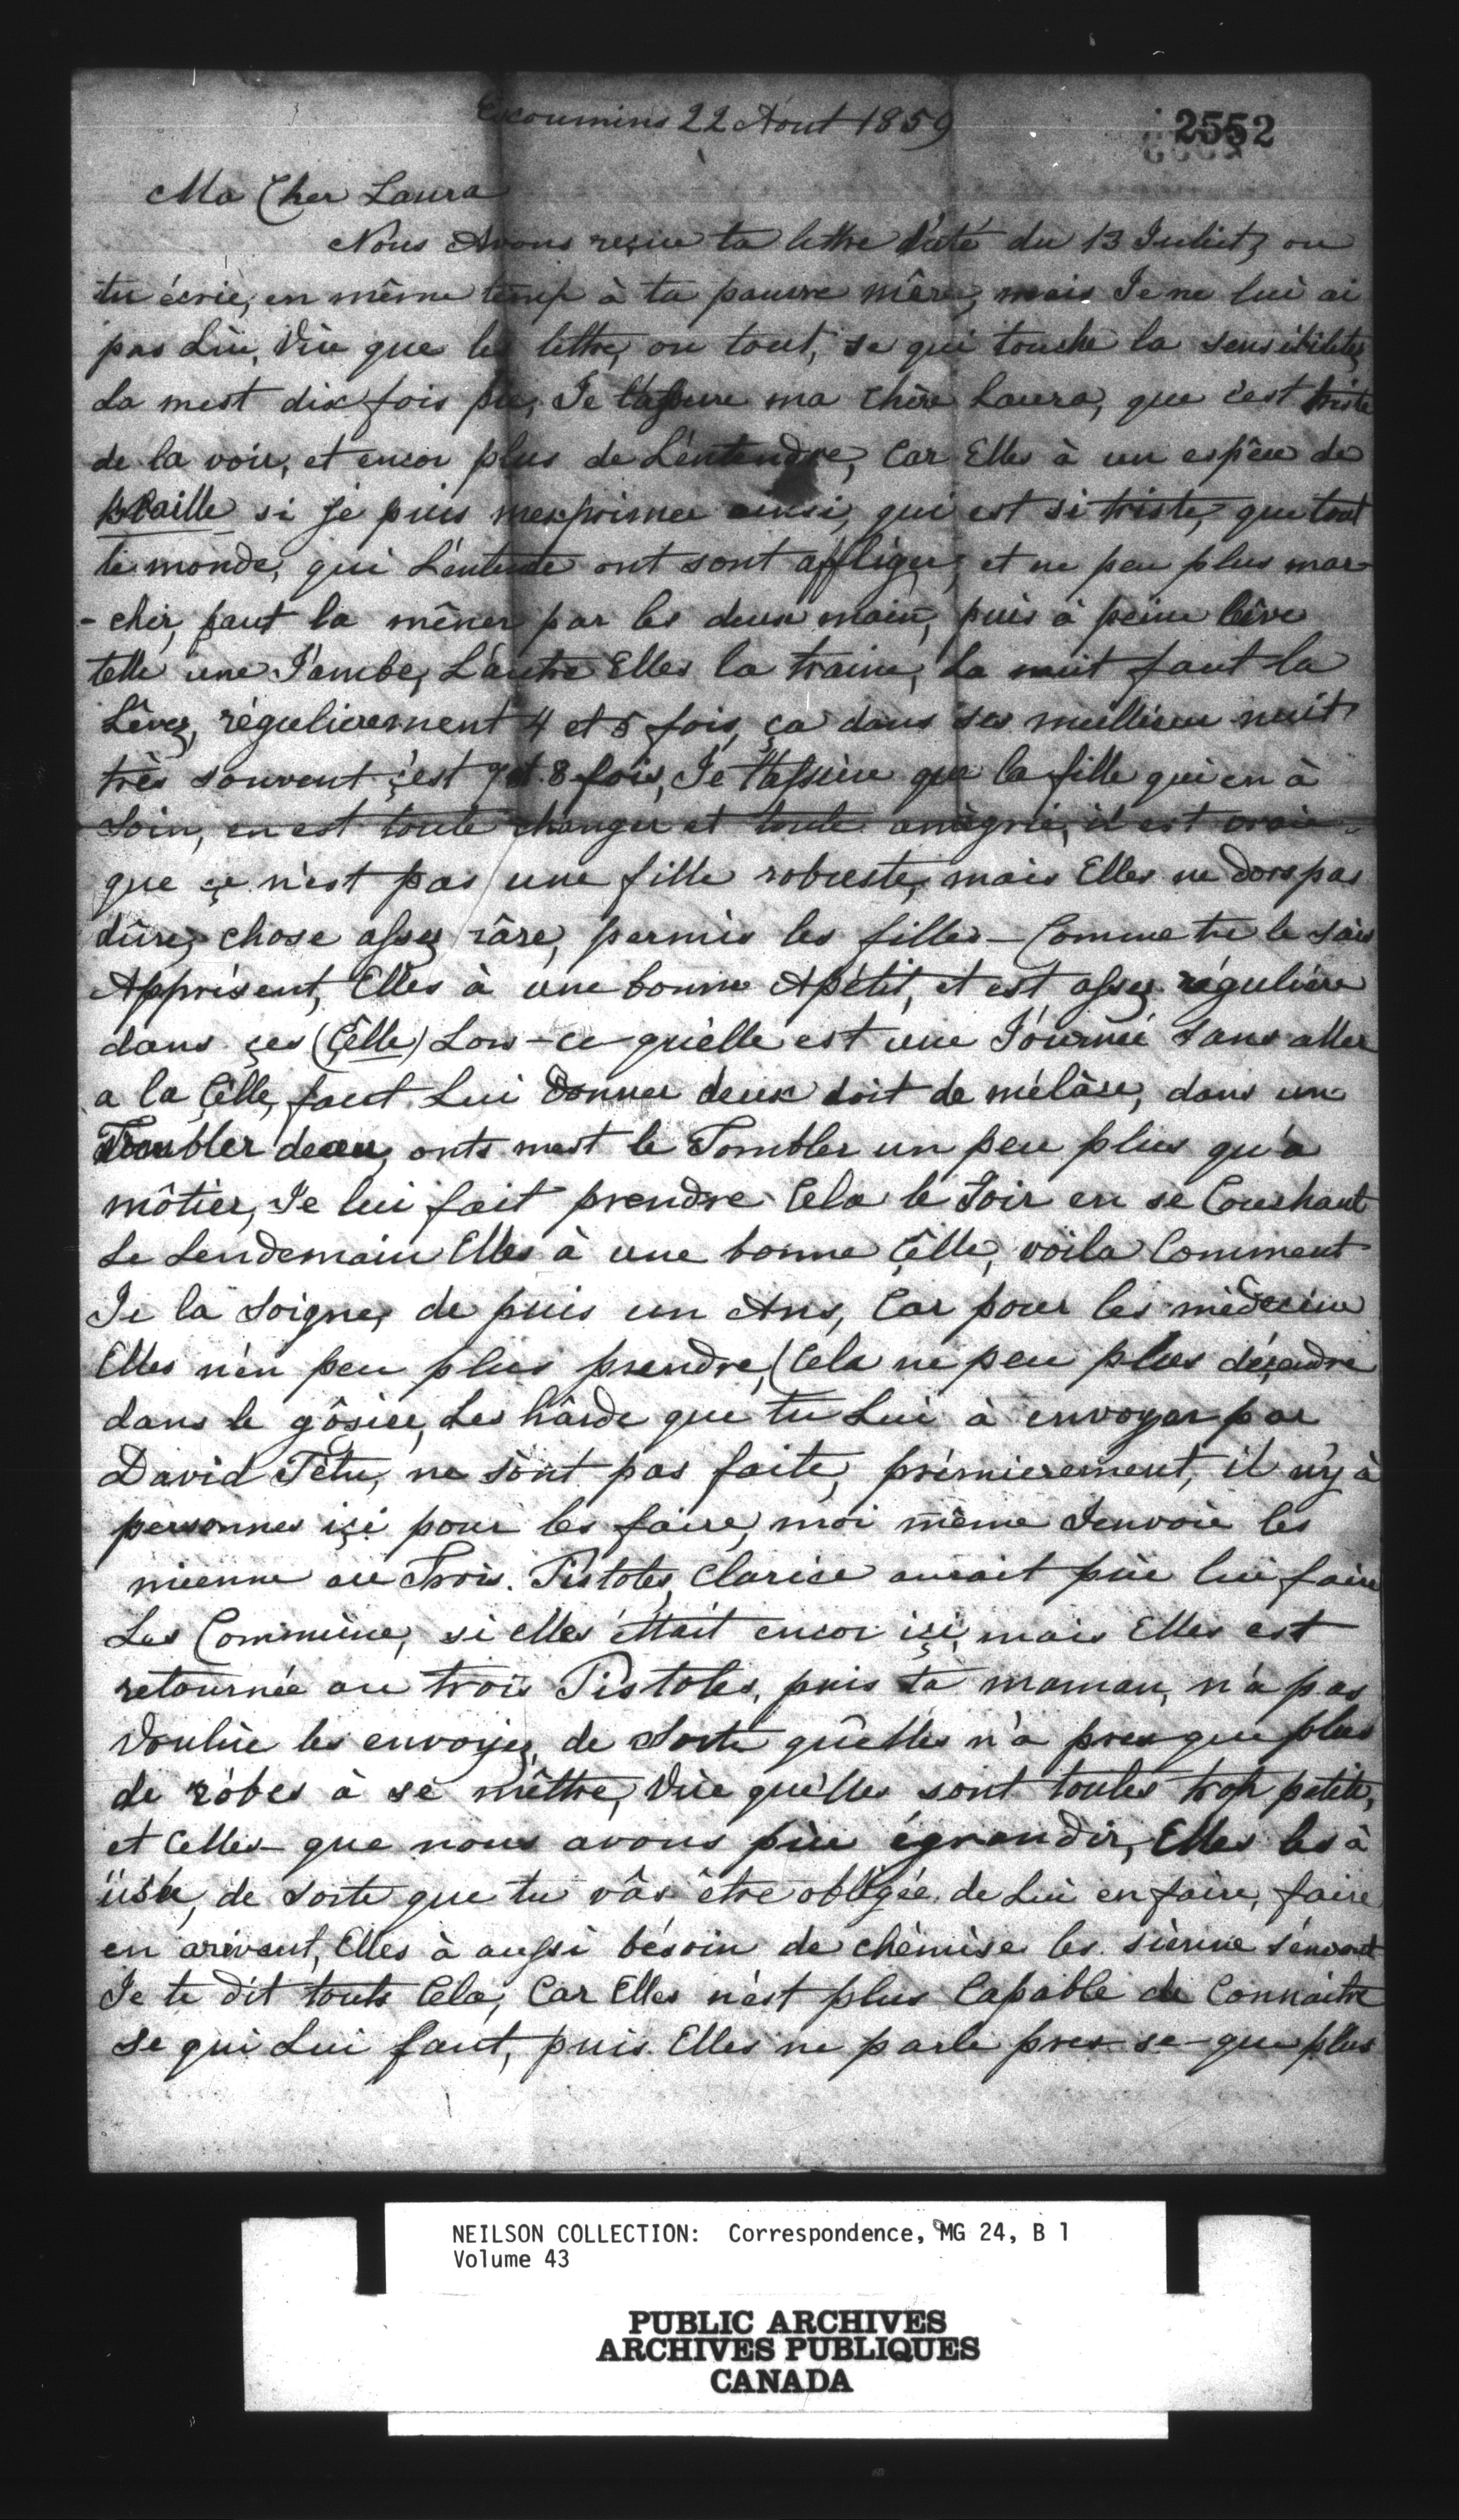 Escoumins 22 Août 1859
2552
Ma Cher Laura
Nous Avons reçue ta lettre daté du 13 Juliet, ou
tu écrie, en même temp à ta pauvre mère, mais Je ne lui ai
pas Lûe, Vûe que les lettre, ou tout, se qui touche la sensibilitez
La mest dix fois pie, Je t'assure ma chère Laura, que c'est triste
de la voir, et encor plus de L'entendre, Car Elles à un espèce de
braille si je puis mexprimer ainsi, qui est si triste, que tout
le monde, qui L'entende ont sont affliger, et ne peu plus mar-
-cher, faut la mêner par les deux main, puis à peine lève
telle une Jambe, L'autre Elles la traine, La nuit faut la
Lêvez, régulierement 4 et 5 fois, ça dans ses meillieur nuit
très souvent ç'est 7 et 8 fois, Je t'assure que la fille qui en à
Soin, en est toute changer et toute amégrie, il est vraie
que çe n'est pas une fille robuste, mais Elles ne dors pas
dûre, chose assez râre, permis les filles – Comme tu le sais
Apprésent, Elles à une bonne Apétit, et est assez régulière
dans ses (Çêlle) Lors-ce-qu'elle est une Journée sans aller
a la Çêlle, faut Lui donner deux doit de mélâse, dans un
Tombler deau, onts mest le Tombler un peu plus qu'a
môtier, Je lui fait prendre Cela le Soir en se Couchant
Le Lendemain Elles à une bonne Çêlle, voila Comment
Je la Soigne, de puis un Ans, Car pour les médecine
Elles n'en peu plus prendre, Cela ne peu plus déçendre
dans le gôsier, Les hârde que tu Lui à envoyer par
David Têtu, ne sont pas faite, prémierement, il n'y à
personnes içi pour les faire, moi même J'envoie les
mienne au Trois. Pistoles, Clarice aurait pûe lui faire
Les Commune, si elles êttait encor içi, mais Elles est
retournée au trois Pistoles, puis ta maman, n'a pas
Voulûe les envoyez, de Sorte qu'elles n'a presque plus
de robes à se mêttre, Vûe qu'elles sont toutes trop petite,
et Celles que nous avons pûe égrandir, Elles les à
üsée, de sorte que tu vâs être obligée, de Lui en faire, faire
en arivant, Elles à aussi bésoin de chèmise les sienne s'envont
Je te dit touts Cela, Car Elles n'est plus Capable de Connaitre
se qui Lui faut, puis Elles ne parle pres-se-que plus
NEILSON COLLECTION: Correspondence, MG 24, B 1
Volume 43
PUBLIC ARCHIVES
ARCHIVES PUBLIQUES
CANADA